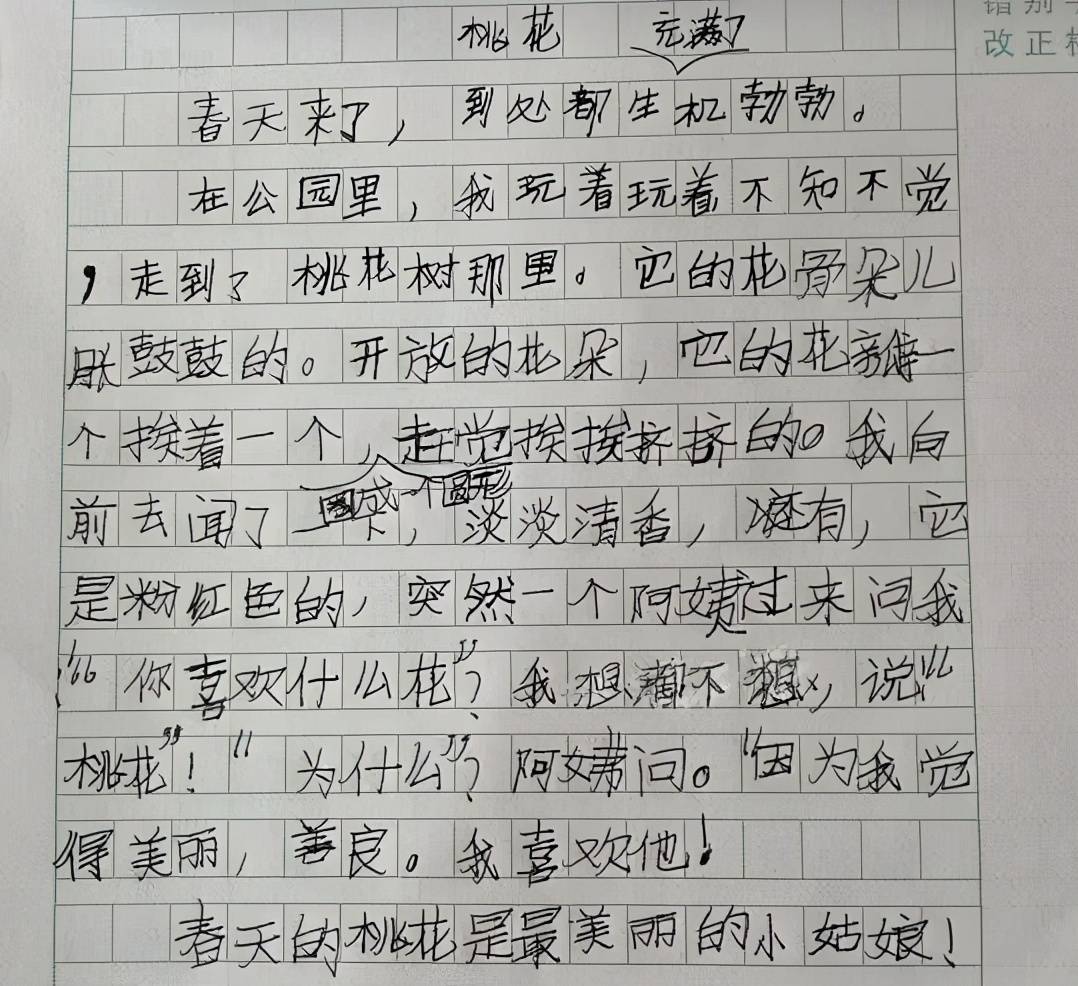 错别字
改正栏
桃花
充满了
春天来了，到处都生机勃勃。
在公园里，我玩着玩着不知不觉
，走到了桃花树那里。它的花骨朵儿
胀鼓鼓的。开放的花朵，它的花瓣一
个挨着一个，走觉挨挨挤挤的。我向
围成一个圆形
前去闻了一下，淡淡清香，还有，它
是粉红色的，突然一个阿姨过来问我
“你喜欢什么花”？我想都不想，说“
桃花”！“为什么”？阿姨问。“因为我觉
得美丽，善良。我喜欢他！
春天的桃花是最美丽的小姑娘！